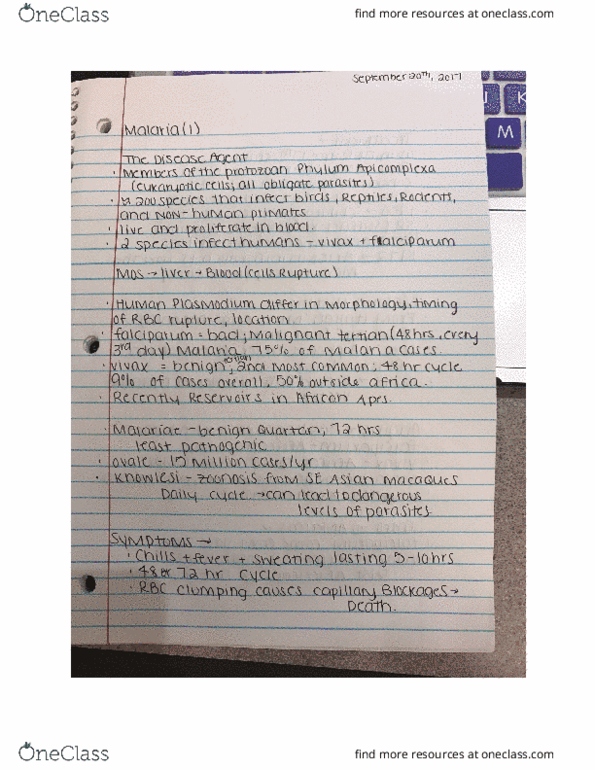 OneClass
find more resources at oneclass.com
September 20th, 2017
Malaria (1)
The Disease Agent
· Members of the protozoan Phylum Apicomplexa
(eukaryotic cells; all obligate parasites)
· ≈ 200 species that infect birds, Reptiles, Rodents,
and non-human primates
· live and proliferate in blood
· 2 species infect humans - vivax + falciparum
Mos → liver → Blood (cells Rupture)
· Human Plasmodium differ in morphology, timing
of RBC rupture, location
· falciparum = bad; Malignant tertian (48hrs, every
3rd day) Malaria, 75% of malaria cases.
· vivax = benign tertian, 2nd most common; 48 hr cycle
9% of cases overall, 50% outside africa.
· Recently Reservoirs in African Apes.
· Malariae - benign quartan, 72 hrs
least pathogenic
· ovale - 15 Million cases/yr
· Knowlesi - zoonosis from SE Asian macaques
Daily cycle → can lead to dangerous
levels of parasites
Symptoms →
· Chills + fever + sweating lasting 5-10hrs
· 48 or 72 hr cycle
· RBC clumping causes capillary Blockages →
Death.
K
M
OneClass
find more resources at oneclass.com